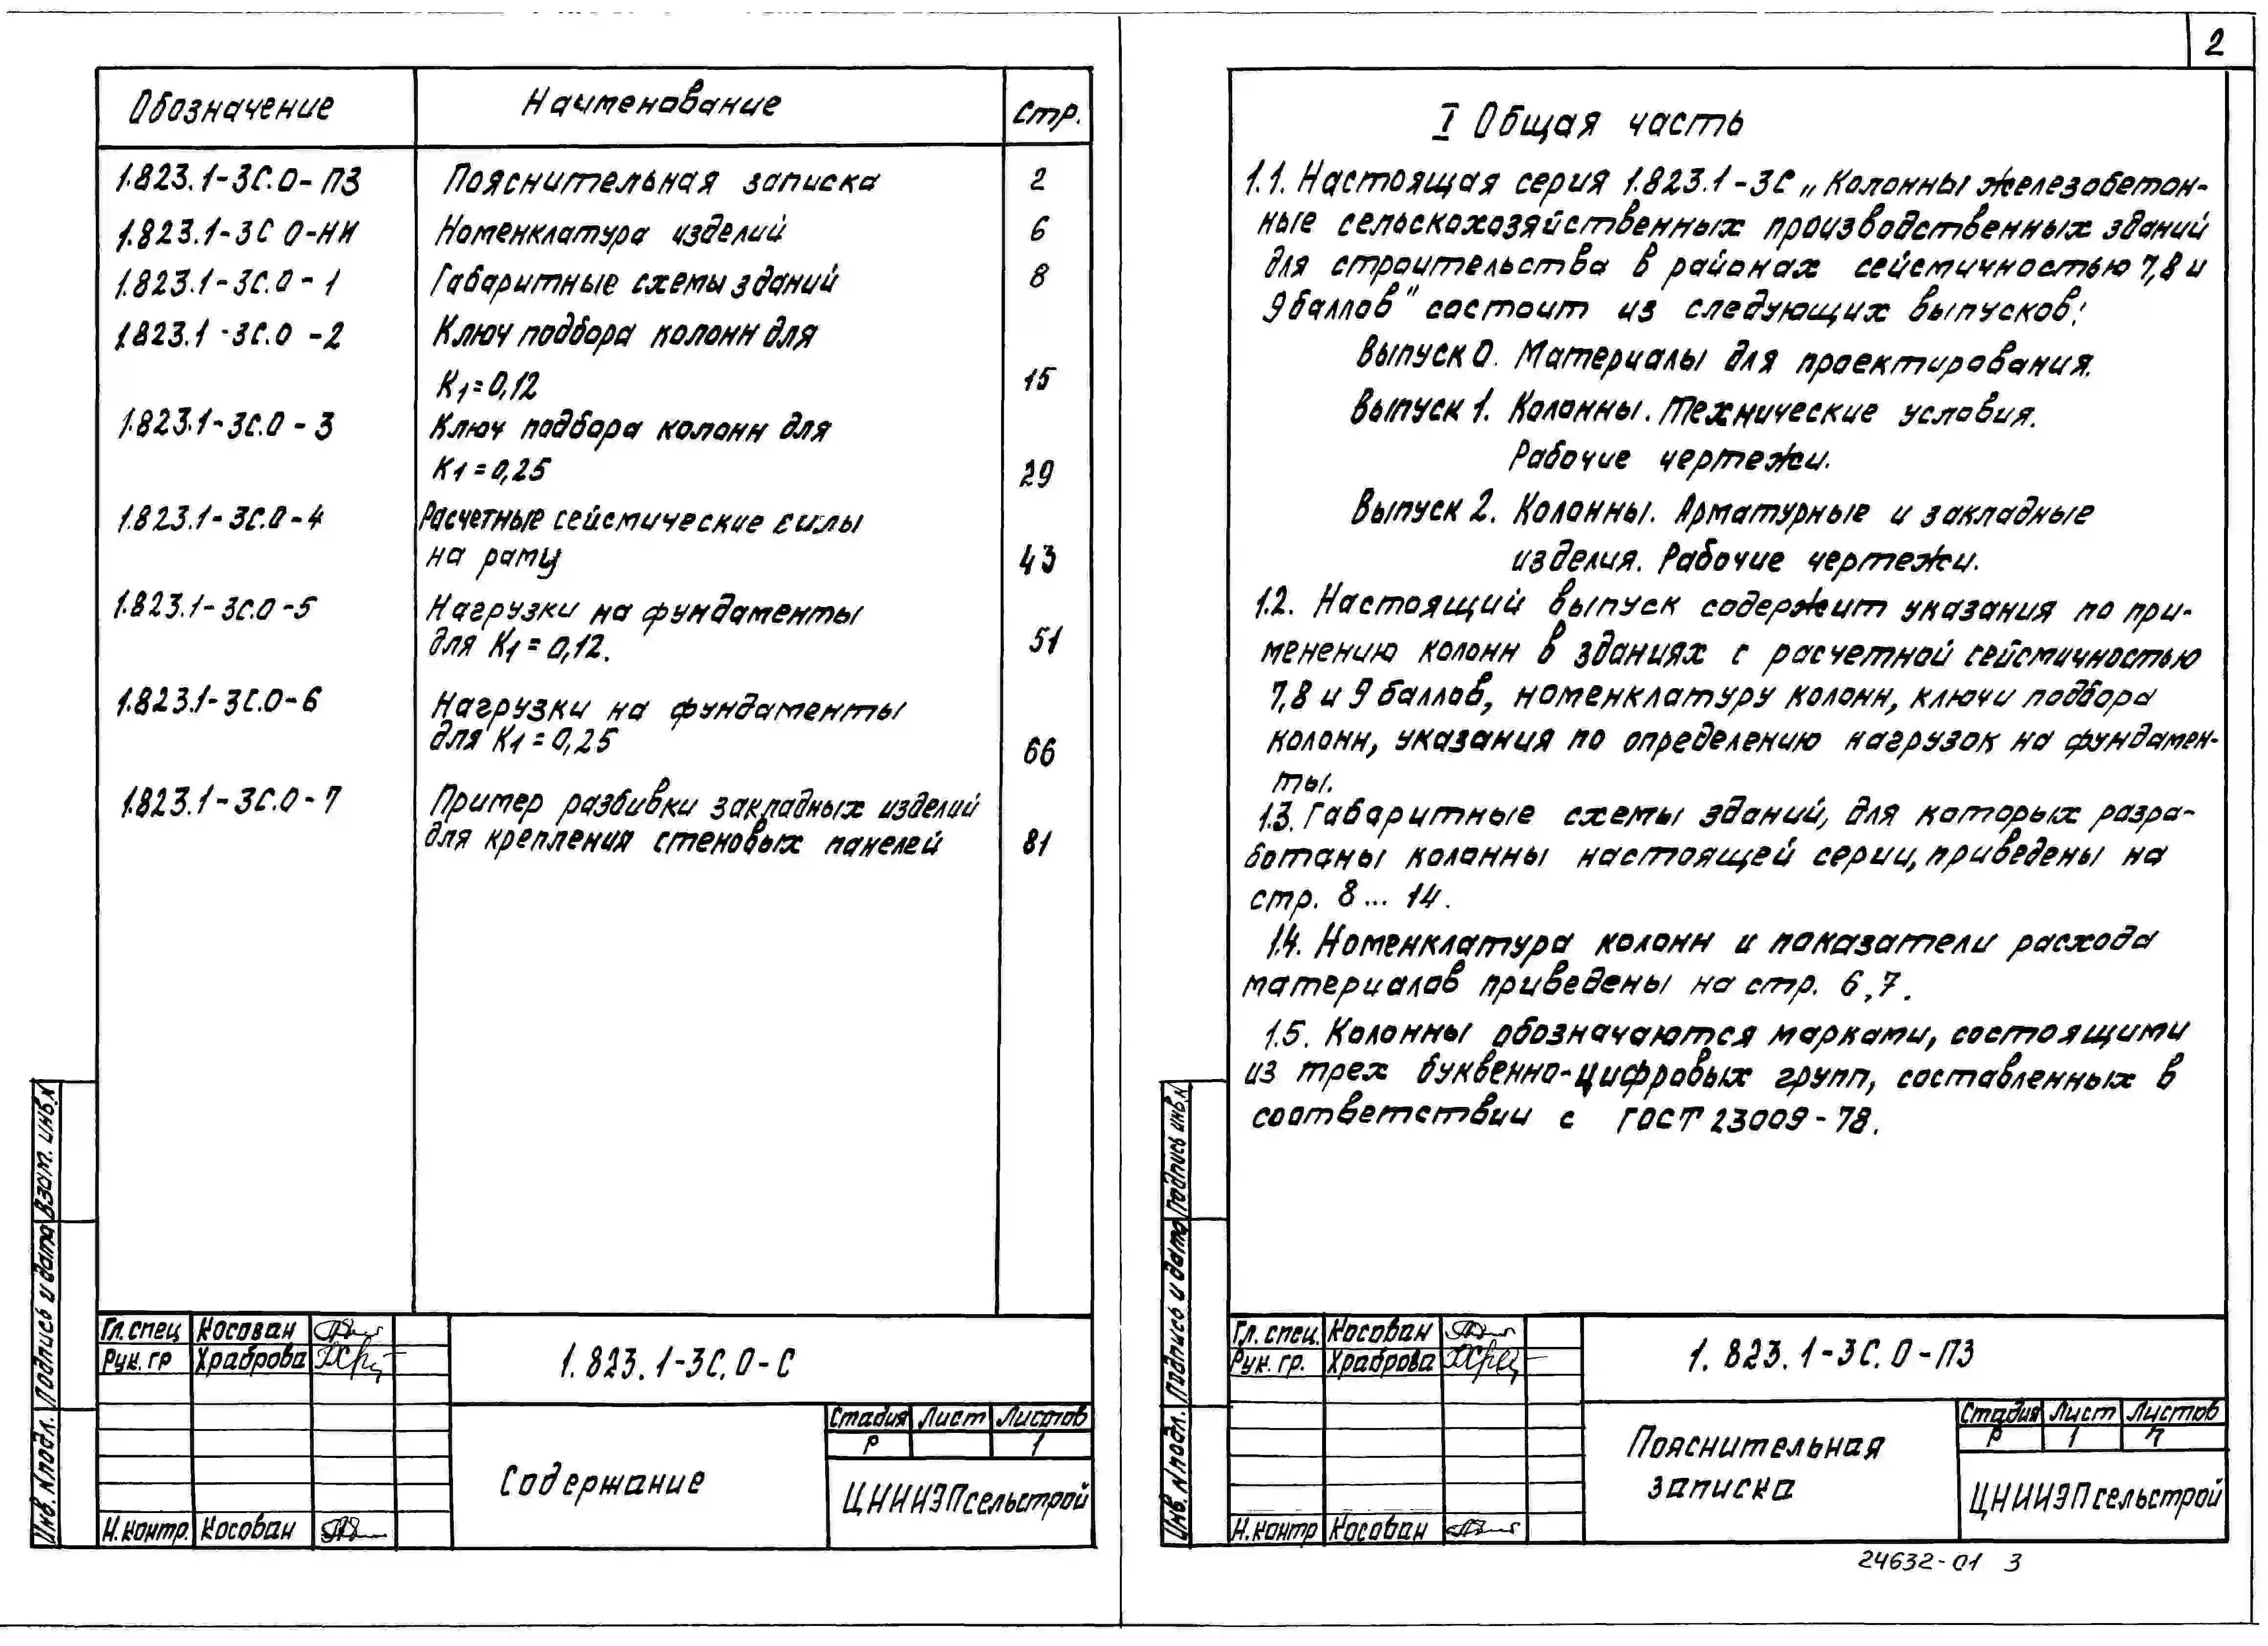 Обозначение Наименование Стр.
1.823.1-3С.0-ПЗ Пояснительная записка 2
1.823.1-3С 0-НИ Номенклатура изделий 6
1.823.1-3С.0-1 Габаритные схемы зданий 8
1.823.1-3С.0-2 Ключ подбора колонн для
К1=0,12 15
1.823.1-3С.0-3 Ключ подбора колонн для
К1=0,25 29
1.823.1-3С.0-4 Расчетные сейсмические силы
на раму 43
1.823.1-3С.0-5 Нагрузки на фундаменты
для К1=0,12. 51
1.823.1-3С.0-6 Нагрузки на фундаменты
для К1=0,25 66
1.823.1-3С.0-7 Пример разбивки закладных изделий
для крепления стеновых панелей 81
Взам. инв.N
Подпись и дата
Инв. N подл.
Гл. спец Косован
Рук. гр Храброва
Н. контр. Косован
1.823.1-3С.0-С
Содержание
Стадия Лист Листов
Р 1
ЦНИИЭПсельстрой
2
I Общая часть
1.1. Настоящая серия 1.823.1-3С „Колонны железобетон-
ные сельскохозяйственных производственных зданий
для строительства в районах сейсмичностью 7,8 и
9 баллов" состоит из следующих выпусков:
Выпуск 0. Материалы для проектирования.
Выпуск 1. Колонны. Технические условия.
Рабочие чертежи.
Выпуск 2. Колонны. Арматурные и закладные
изделия. Рабочие чертежи.
1.2. Настоящий выпуск содержит указания по при-
менению колонн в зданиях с расчетной сейсмичностью
7,8 и 9 баллов, номенклатуру колонн, ключи подбора
колонн, указания по определению нагрузок на фундамен-
ты.
1.3. Габаритные схемы зданий, для которых разра-
ботаны колонны настоящей серии, приведены на
стр. 8... 14.
1.4. Номенклатура колонн и показатели расхода
материалов приведены на стр. 6,7.
1.5. Колонны обозначаются марками, состоящими
из трех буквенно-цифровых групп, составленных в
соответствии с ГОСТ 23009-78.
Подпись инв.N
Подпись и дата
Инв. N подл.
Гл. спец. Косован
Рук. гр. Храброва
Н. контр Косован
1.823.1-3С.0-ПЗ
Пояснительная
записка
Стадия Лист Листов
Р 1 7
ЦНИИЭПсельстрой
24632-01 3